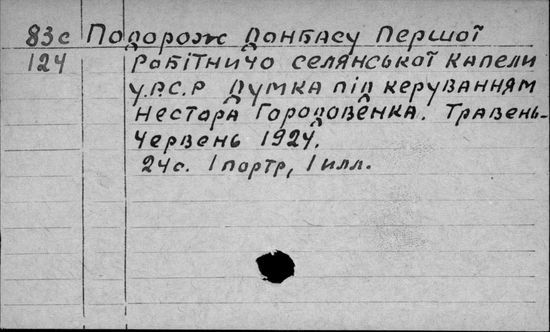 83с Подорож Донбасу Першої
124 робітничо селянської капели
У.Р.С.Р Думка під керуванням
Нестора Городовенка. Травень-
Червень 1924.
24с. 1 портр, 1 илл.